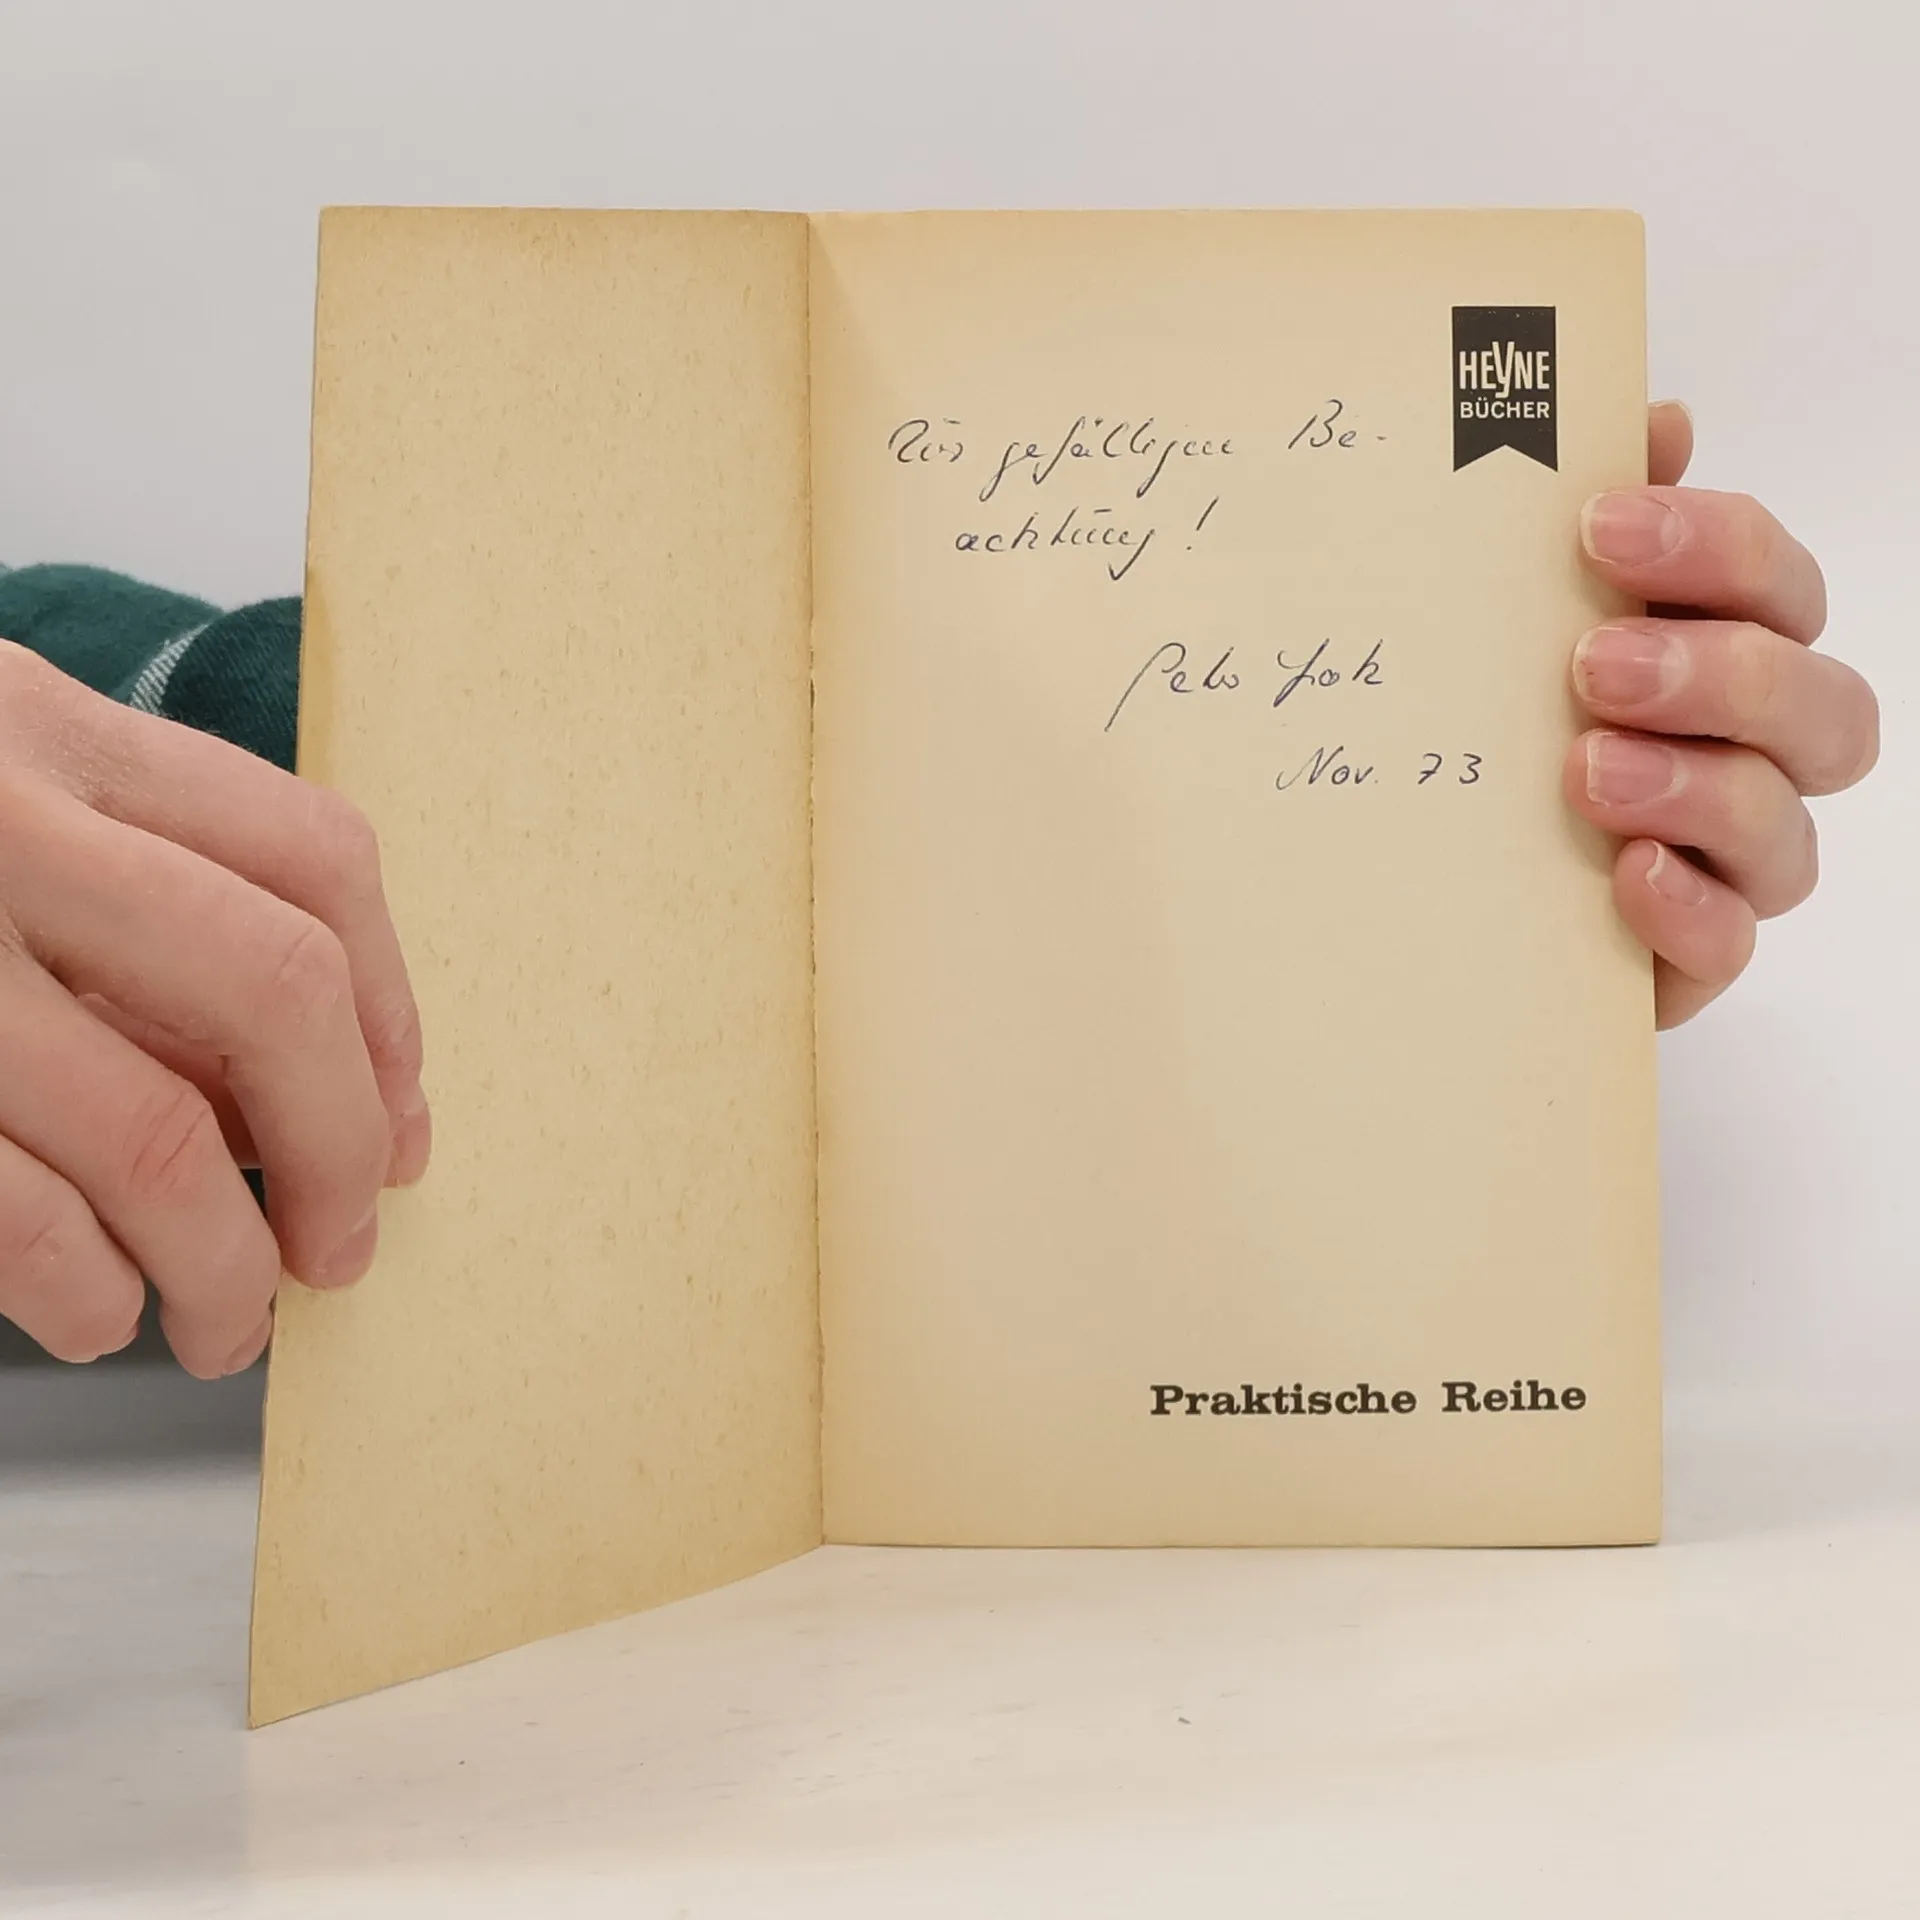 HEYNE
BÜCHER
Zur gefälligen Be-
achtung!
Nov. 73
Praktische Reihe